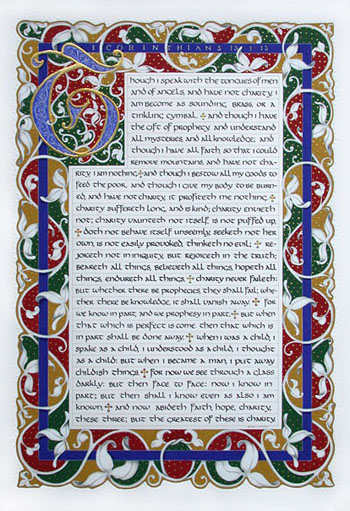 I CORINTHIANS 13:1-13
Though I speak with the tongues of men
and of angels, and have not charity, I
am become as sounding brass, or a
tinkling cymbal. And though I have
the gift of prophecy, and understand
all mysteries, and all knowledge; and
though I have all faith, so that I could
remove mountains, and have not cha-
rity, I am nothing. And though I bestow all my goods to
feed the poor, and though I give my body to be burn-
ed, and have not charity, it profiteth me nothing.
Charity suffereth long, and is kind; charity envieth
not; charity vaunteth not itself, is not puffed up,
Doth not behave itself unseemly, seeketh not her
own, is not easily provoked, thinketh no evil; Re-
joiceth not in iniquity, but rejoiceth in the truth;
Beareth all things, believeth all things, hopeth all
things, endureth all things. Charity never faileth:
but whether there be prophecies, they shall fail; whe-
ther there be knowledge, it shall vanish away. For
we know in part, and we prophesy in part. But when
that which is perfect is come, then that which is
in part shall be done away. When I was a child, I
spake as a child, I understood as a child, I thought
as a child: but when I became a man, I put away
childish things. For now we see through a glass
darkly; but then face to face: now I know in
part; but then shall I know even as also I am
known. And now abideth faith, hope, charity,
these three; but the greatest of these is charity.